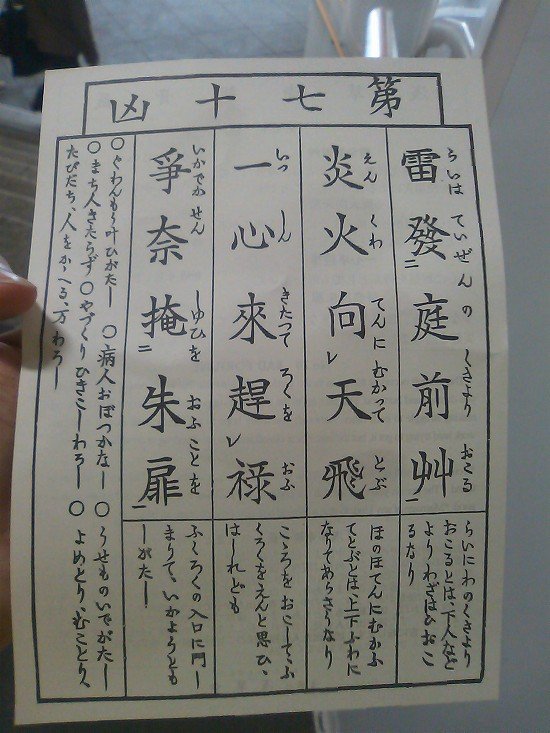 第七十凶
雷發庭前艸
らいは ていぜんの くさより おこる
らいにわのくさより
おこるとは、下人など
よりわざはひおこ
るなり
炎火向天飛
えんくわ てんに むかって とぶ
ほのほてんにむかふ
てとぶとは、上下ふわに
なりてあらさうなり
一心來趕禄
いっしん きたつて ろくを おふ
こゝろをおこしてふ
くろくをえんと思ひ、
はしれども
爭奈掩朱扉
いかでかせん しゆひを おふことを
ふくろくの入口に門し
まりて、いかようとも
しがたし
○ぐわんもう叶ひがたし ○病人おぼつかなし ○うせものいでがたし
○まち人きたらず ○やづくりひきこしわろし ○よめとり、むことり、
たびだち、人をかゝへる、万わろし